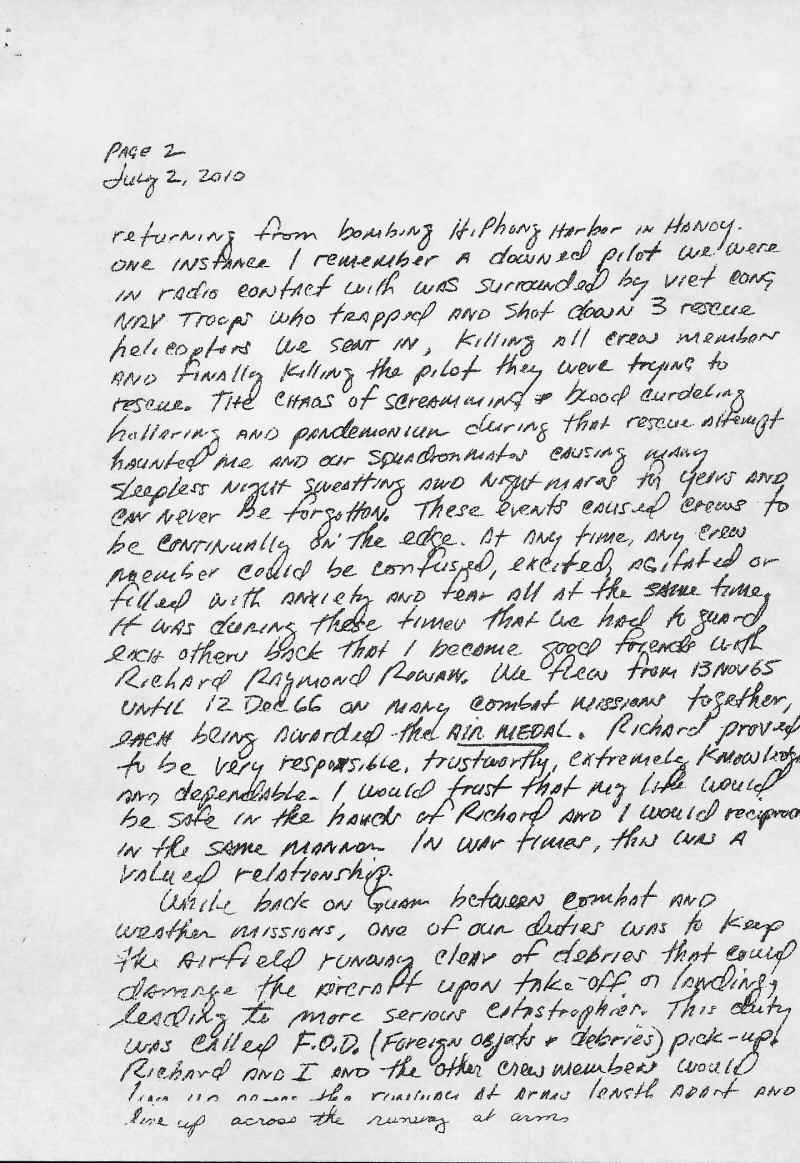 PAGE 2
July 2, 2010
returning from bombing HiPhong Harbor in Hanoy.
One instance I remember a downed pilot we were
in radio contact with was surrounded by Viet Cong
NRV Troops who trapped and shot down 3 rescue
helicopters we sent in, killing all crew members
and finally killing the pilot they were trying to
rescue. The chaos of screamming & blood curdeling
hollering and pandemonium during that rescue attempt
haunted me and our squadronmates causing many
sleepless night sweatting and nightmares for years and
can never be forgotton. These events caused crews to
be continually on the edge. At any time, any crew
member could be confused, excited, agitated or
filled with anxiety and fear all at the same time.
It was during these times that we had to guard
each others back that I became good friends with
Richard Raymond Rowan. We flew from 13 Nov 65
until 12 Dec 66 on many combat missions together,
each being awarded the AIR MEDAL. Richard proved
to be very responsible, trustworthy, extremely knowledg
and dependable. I would trust that my life would
be safe in the hands of Richard and I would reciproc
in the same manner. In war times, this was a
valued relationship.
While back on Guam between combat and
weather missions, one of our duties was to keep
the airfield runway clear of debries that could
damage the aircraft upon take-off or landing,
leading to more serious catastrophies. This duty
was called F.O.D. (Foreign objects & debries) pick-up.
Richard and I and the other crewmembers would
line up across the runway at arms length apart and
line up across the runway at arms